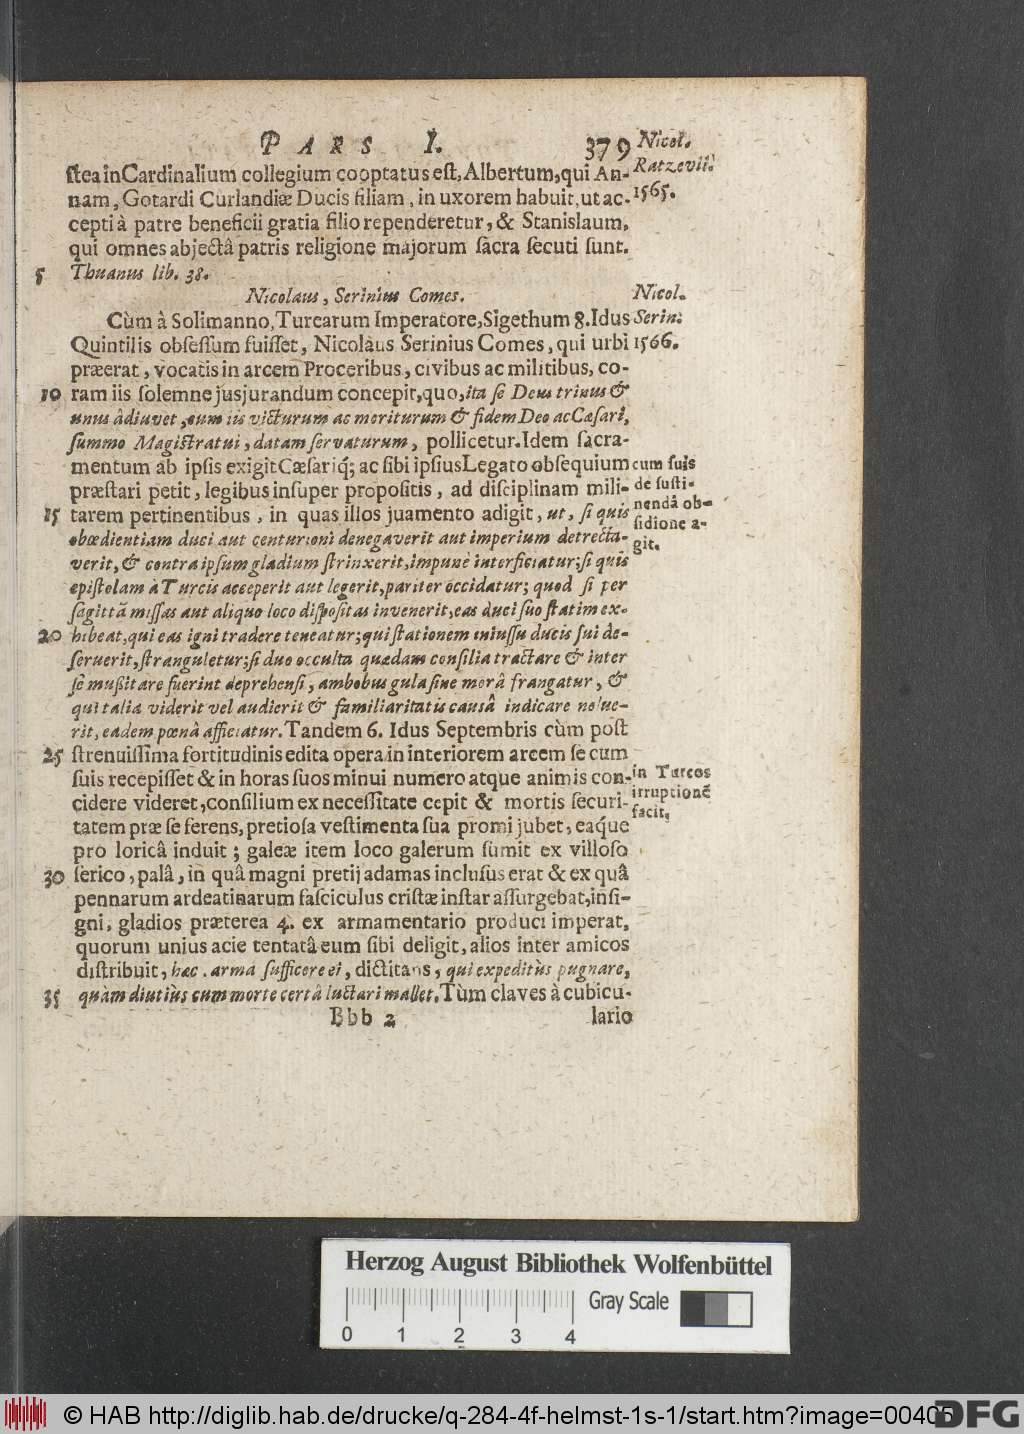 PARS I. 379
Nicol.
Ratzevil.
1565.
ſtea in Cardinalium collegium cooptatus eſt, Albertum, qui An-
nam, Gotardi Curlandiæ Ducis filiam, in uxorem habuit, ut ac-
cepti à patre beneficii gratia filio rependeretur, & Stanislaum,
qui omnes abjectâ patris religione majorum ſacra ſecuti ſunt.
5 Thuanus lib. 38.
Nicolaus, Serinius Comes.
Nicol.
Serin.
1566.
Cùm à Solimanno, Turcarum Imperatore, Sigethum 8. Idus
Quintilis obſeſſum fuiſſet, Nicolaus Serinius Comes, qui urbi
præerat, vocatis in arcem Proceribus, civibus ac militibus, co-
10 ram iis ſolemne jusjurandum concepit, quo, ita ſe Deus trinus &
unus âdiuvet, cum iis victurum ac moriturum & fidem Deo ac Cæſari,
ſummo Magiſtratui, datam ſervaturum, pollicetur. Idem ſacra-
mentum ab ipſis exigit Cæſariq́; ac ſibi ipſius Legato obſequium
præſtari petit, legibus inſuper propoſitis, ad diſciplinam mili-
15 tarem pertinentibus, in quas illos juamento adigit, ut, ſi quis
cum ſuis
de ſuſti-
nendâ ob-
ſidione a-
git.
obœdientiam duci aut centurioni denegaverit aut imperium detrecta-
verit, & contra ipſum gladium ſtrinxerit, impunè interficiatur; ſi quis
epiſtolam à Turcis acceperit aut legerit, pariter occidatur; quod ſi per
ſagittā miſſas aut aliquo loco diſpoſitas invenerit, eas duci ſuo ſtatim ex-
20 hibeat, qui eas igni tradere teneatur; qui ſtationem iniuſſu ducis ſui de-
ſeruerit, ſtranguletur; ſi duo occulta quædam conſilia tractare & inter
ſe mußitare fuerint deprehenſi, ambobus gula ſine morâ frangatur, &
qui talia viderit vel audierit & familiaritatis causâ indicare nolue-
rit, eadem pœnâ afficiatur. Tandem 6. Idus Septembris cùm poſt
25 ſtrenuiſſima fortitudinis edita opera in interiorem arcem ſe cum
ſuis recepiſſet & in horas ſuos minui numero atque animis con-
cidere videret, conſilium ex neceſſitate cepit & mortis ſecuri-
in Turcos
irruptionē
facit,
tatem præ ſe ferens, pretioſa veſtimenta ſua promi jubet, eaq́ue
pro loricâ induit; galeæ item loco galerum ſumit ex villoſo
30 ſerico, palâ, in quâ magni pretij adamas incluſus erat & ex quâ
pennarum ardeatinarum faſciculus criſtæ inſtar aſſurgebat, inſi-
gni, gladios præterea 4. ex armamentario produci imperat,
quorum unius acie tentatâ eum ſibi deligit, alios inter amicos
diſtribuit, hac. arma ſufficere ei, dictitans, qui expeditùs pugnare,
35 quàm diutiùs cum morte certâ luctari mallet. Tùm claves à cubicu-
Bbb 2 lario
Herzog August Bibliothek Wolfenbüttel
Gray Scale
0 1 2 3 4
© HAB http://diglib.hab.de/drucke/q-284-4f-helmst-1s-1/start.htm?image=00405
DFG